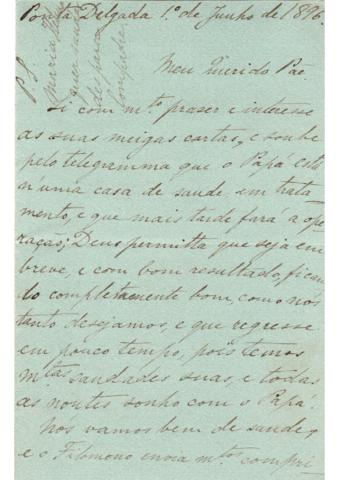 Ponta Delgada 1.º de Junho de 1896.
Meu Querido Pae.
Li com m.to praser e interesse
as suas meigas cartas, e soube
pelo telegramma que o Papá está
n'uma casa de saude, em trata
mento, e que mais tarde fará a ope
ração; Deus permitta que seja em
breve, e com bom resultado, fican
do completamente bom, como nós
tanto desejamos, e que regresse
em pouco tempo, pois temos
m.tas saudades suas, e todas
as noutes sonho com o Papá.
Nós vamos bem de saude,
e o Filomono envia m.tos compri
P. S.
Maria